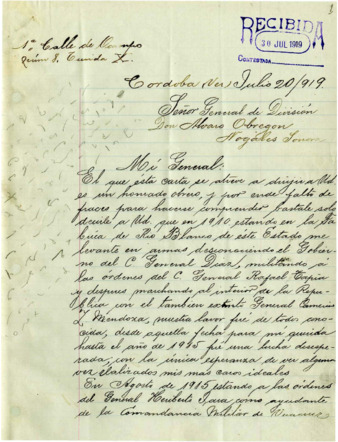 1ª Calle de Ocampo
RECIBIDA
30 JUL 1919
CONTESTADA
Cordoba Ver Julio 20/919.
Señor General de División
Don Alvaro Obregon
Nogáles Sonora
Mi General:
El que ésta carta se atreve a dirigir a Ud.
es un honrado obrero, y por ende falto de
frases para hacerse comprender, bastale solo
decirle a Ud. que en 1910 estando en la Fá-
brica de Rio Blanco de éste Estado me
levanté en armas desconociendo el Gobier-
no del C General Diaz, militando a
las órdenes del C General Rafael Tapia
y después marchando al interior de la Repu-
blica con el tambien extinto General Camerino
Z. Mendoza, nuestra labor fué de todos cono-
cida, desde aquella fecha para mi querida
hasta el año de 1915 fué una lucha desespe-
rada, con la única esperanza de ver algun
vez realizados mis mas caros ideales
En Agosto de 1915 estando a las ordenes
del General Heriberto Jara como ayudante
de la Comandancia Militar de Veracruz